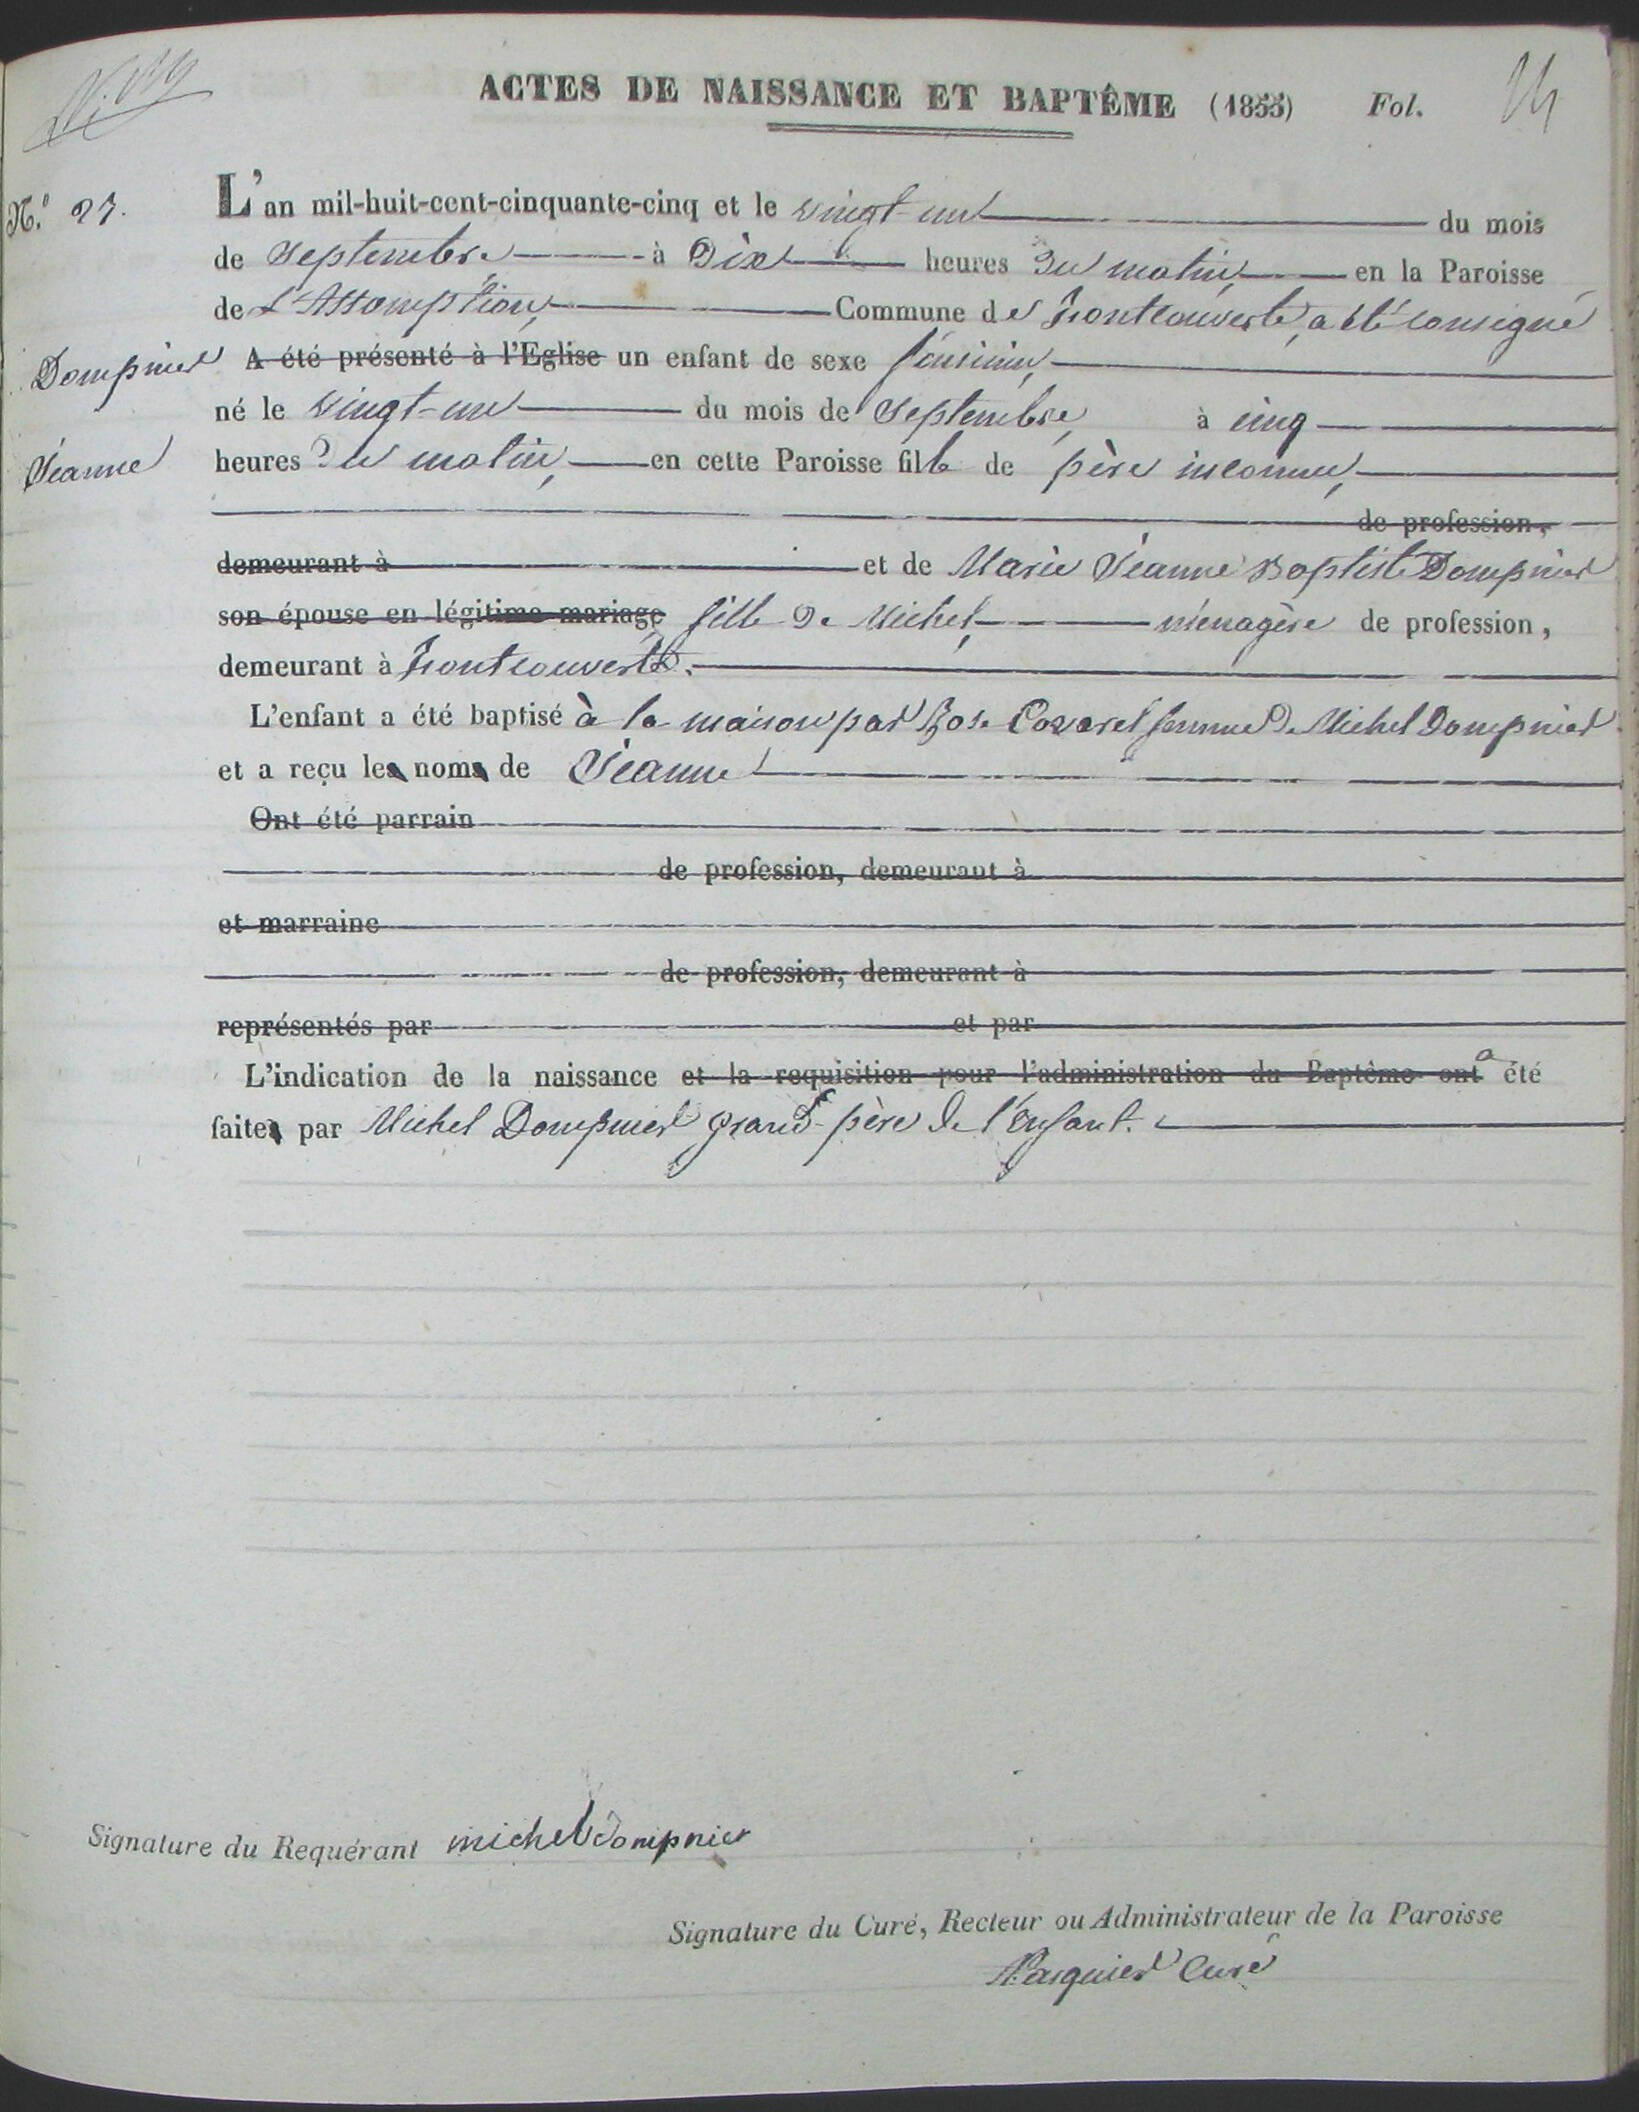 ACTES DE NAISSANCE ET BAPTÊME (1855) Fol. 14
N.º 27.
L'an mil-huit-cent-cinquante-cinq et le vingt-un du mois
de Septembre à Dix heures Du matin, en la Paroisse
de L'Assomption, Commune de Fontcouverte, a été consigné
Dompnier
A été présenté à l'Eglise un enfant de sexe féminin,
né le vingt-un du mois de Septembre, à cinq
Jeanne
heures Du matin, en cette Paroisse fille de père inconnu,
de profession,
demeurant à et de Marie Jeanne Baptiste Dompnier
son épouse en légitime mariage fille De Michel, ménagère de profession,
demeurant à Fontcouverte.
L'enfant a été baptisé à la maison par Rose Covarel femme De Michel Dompnier
et a reçu les noms de Jeanne
Ont été parrain
de profession, demeurant à
et marraine
de profession, demeurant à
représentés par et par
L'indication de la naissance et la requisition pour l'administration du Baptême ont a été
faites par Michel Dompnier grand-père de l'enfant.
Signature du Requérant michel dompnier
Signature du Curé, Recteur ou Administrateur de la Paroisse
Pasquier Curé